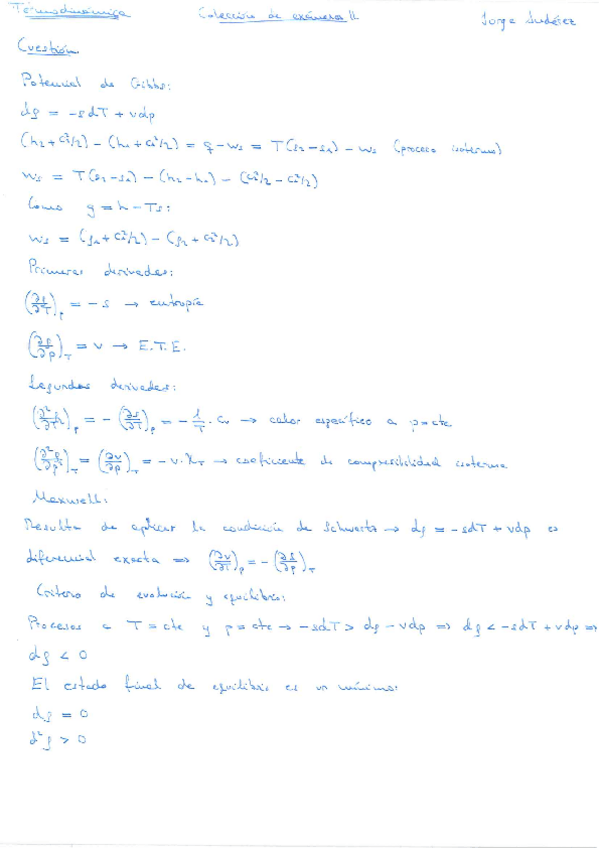 Termodinámica Colección de exámenes II Jorge Judérez
Cuestión
Potencial de Gibbs:
dg = -sdT + vdp
(h₂ + c₂²/2) - (h₁ + c₁²/2) = q - ws = T(s₂-s₁) - ws (proceso isotermo)
ws = T(s₂-s₁) - (h₂-h₁) - (c₂²/2 - c₁²/2)
Como g = h - Ts:
ws = (g₁ + c₁²/2) - (g₂ + c₂²/2)
Primeras derivadas:
(∂g/∂T)p = -s → entropía
(∂g/∂p)T = v → E.T.E.
Segundas derivadas:
(∂²g/∂T²)p = -(∂s/∂T)p = -1/T · cv → calor específico a p=cte
(∂²g/∂p²)T = (∂v/∂p)T = -v·χT → coeficiente de compresibilidad isotermo
Maxwell:
Resulta de aplicar la condición de Schwartz → dg = -sdT + vdp es
diferencial exacta ⇒ (∂v/∂T)p = -(∂s/∂p)T
Criterio de evolución y equilibrio:
Procesos a T = cte y p = cte → -sdT > dg - vdp ⇒ dg < -sdT + vdp ⇒
dg < 0
El estado final de equilibrio es un mínimo:
dg = 0
d²g > 0